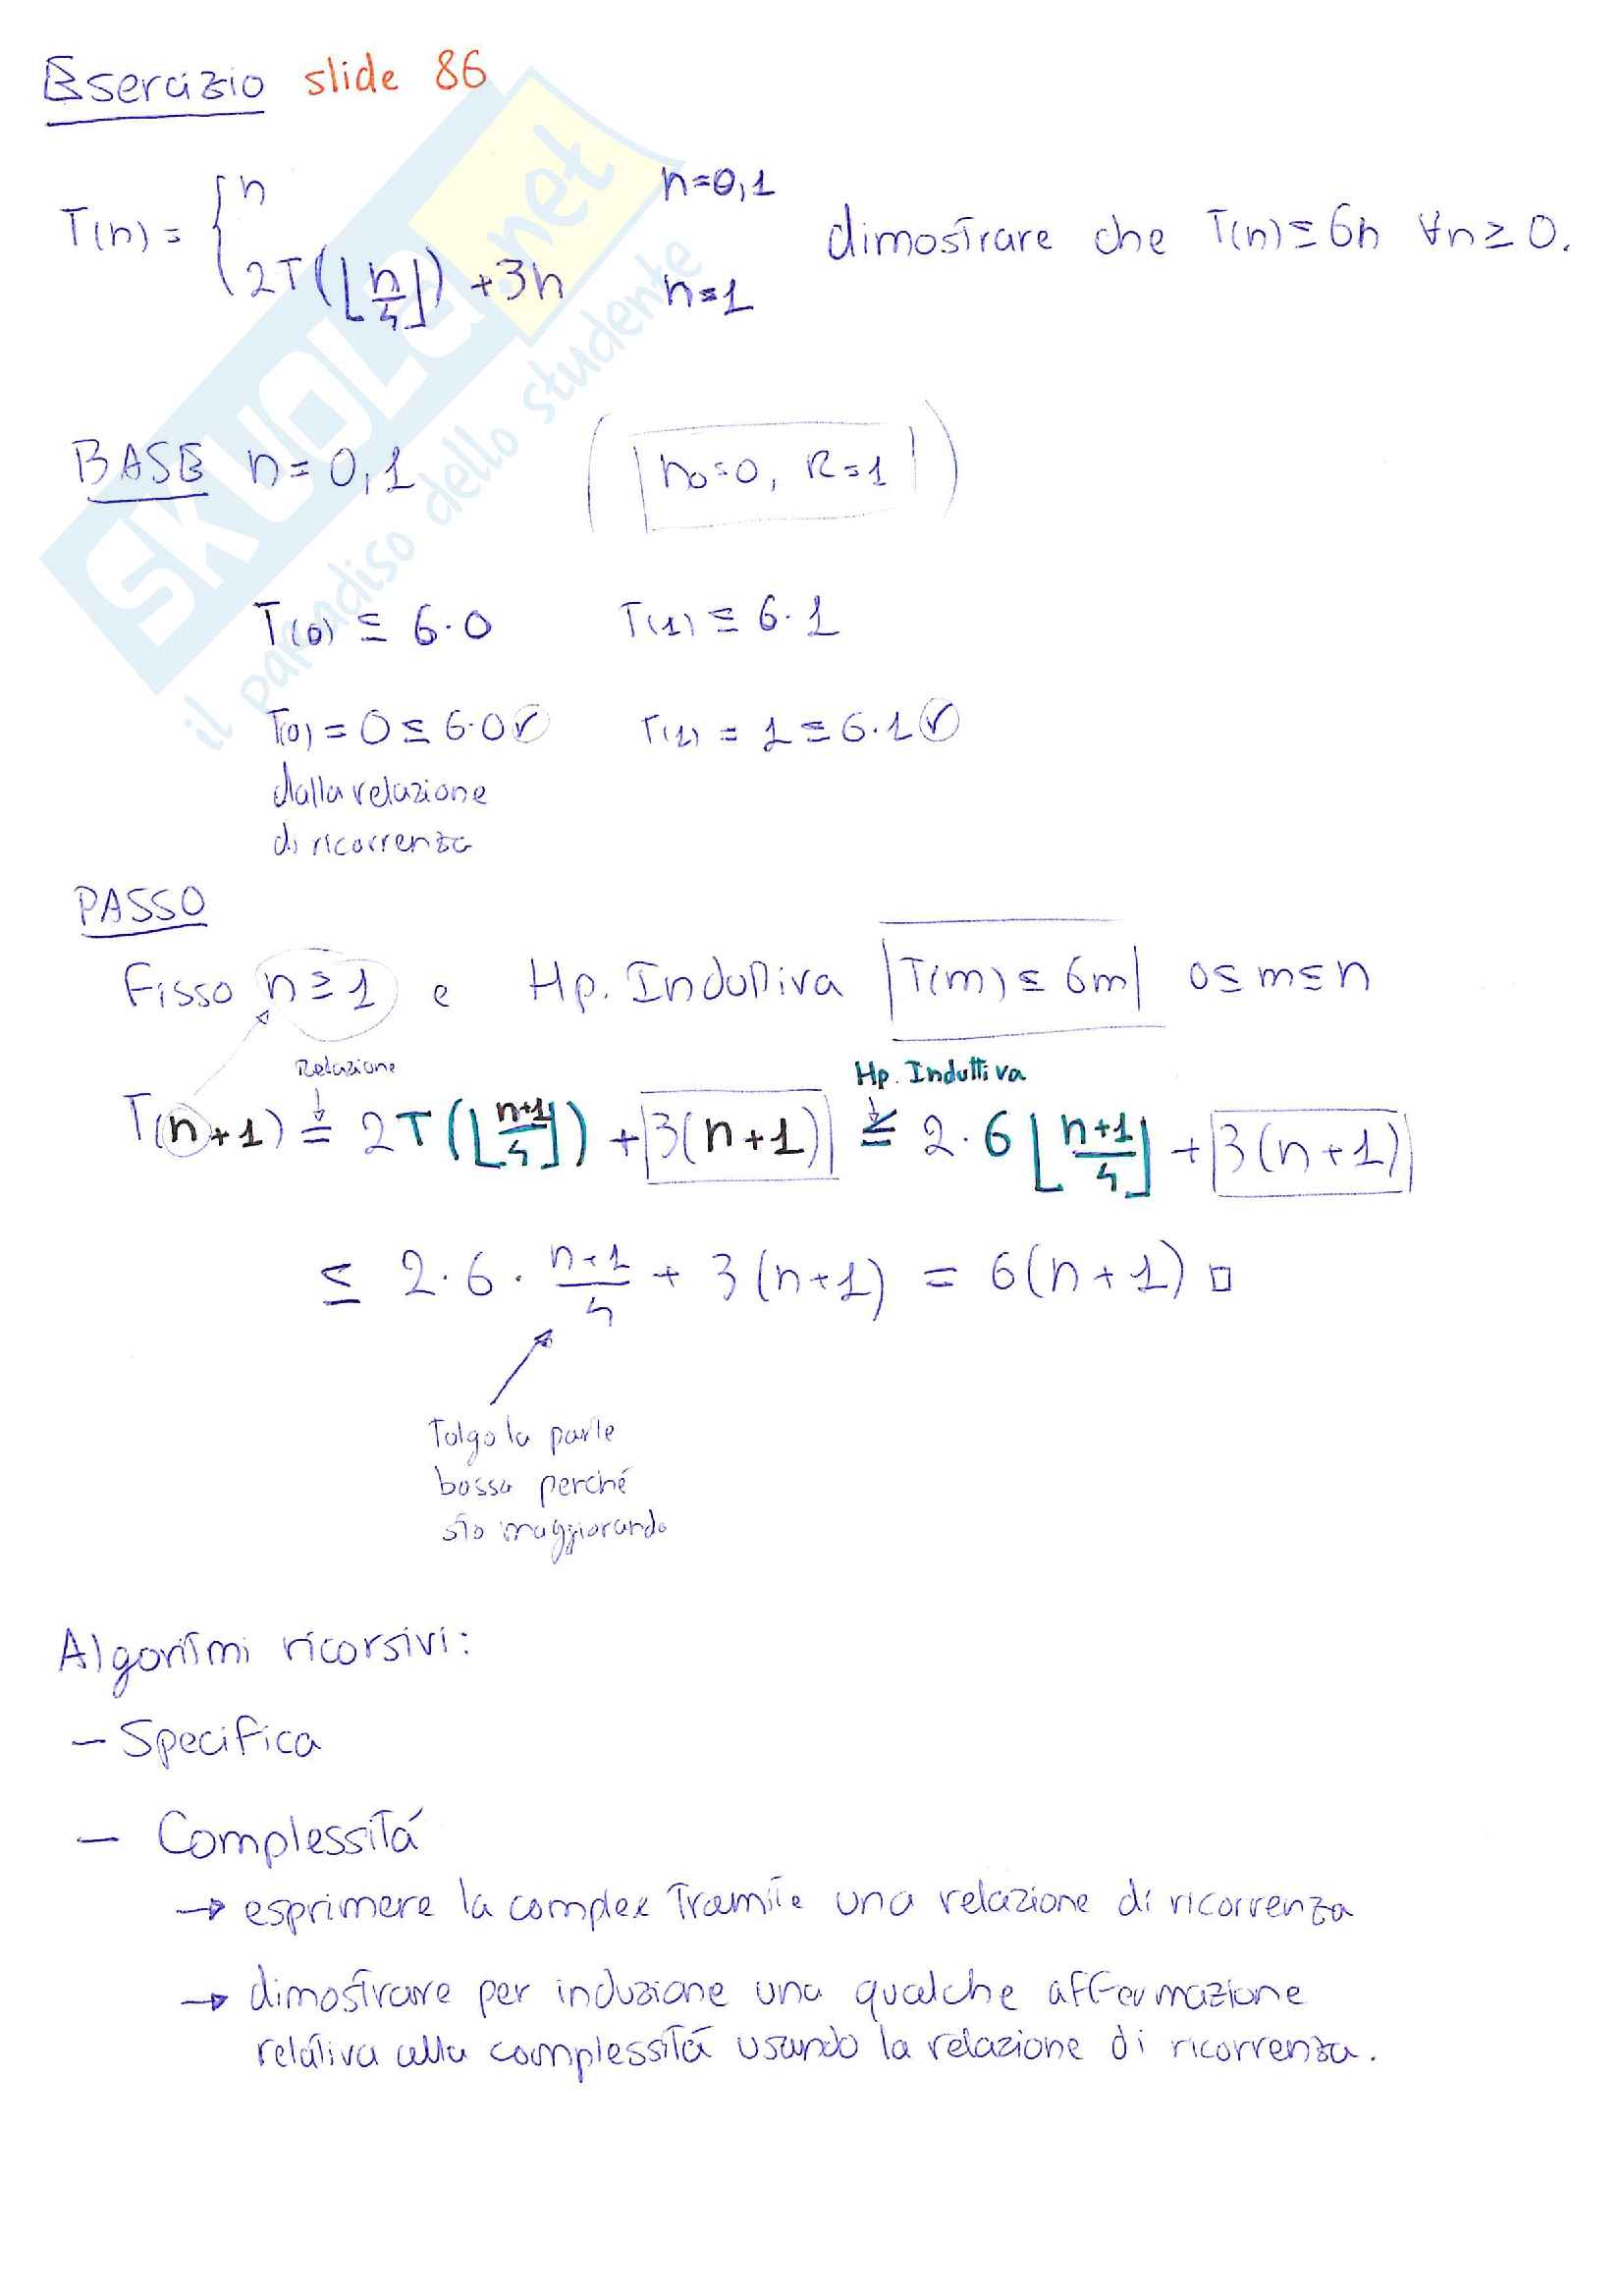 Esercizio slide 86
T(n) = { n n=0,1
2T(⌊n/4⌋) + 3n n=1
dimostrare che T(n) ≤ 6n ∀n ≥ 0.
BASE n = 0,1 (n₀=0, R=1)
T(0) ≤ 6·0 T(1) ≤ 6·1
T(0) = 0 ≤ 6·0 ✓ T(1) = 1 ≤ 6·1 ✓
dalla relazione
di ricorrenza
PASSO
Fisso n ≥ 1 e Hp. Induttiva |T(m) ≤ 6m| 0 ≤ m ≤ n
Relazione Hp. Induttiva
T(n+1) = 2T(⌊n+1/4⌋) + 3(n+1) ≤ 2·6⌊n+1/4⌋ + 3(n+1)
≤ 2·6·n+1/4 + 3(n+1) = 6(n+1) □
Tolgo la parte
bassa perché
sto maggiorando
Algoritmi ricorsivi:
– Specifica
– Complessitá
→ esprimere la complex Tramite una relazione di ricorrenza
→ dimostrare per induzione una qualche affermazione
relativa alla complessitá usando la relazione di ricorrenza.
SKUOLA.net
il paradiso dello studente